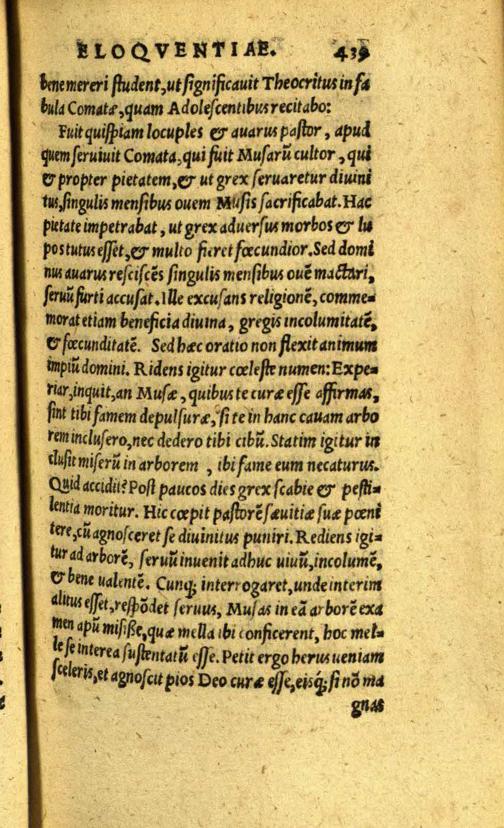 ELOQVENTIAE. 439
bene mereri student, ut significauit Theocritus in fa
bula Comatæ, quam Adolescentibus recitabo:
Fuit quispiam locuples & auarus pastor, apud
quem seruiuit Comata, qui fuit Musarū cultor, qui
& propter pietatem, & ut grex seruaretur diuini
tus, singulis mensibus ouem Musis sacrificabat. Hac
pietate impetrabat, ut grex aduersus morbos & lu
pos tutus esset, & multo fieret fœcundior. Sed domi
nus auarus resciscēs singulis mensibus ouē mactari,
seruū furti accusat. Ille excusans religionē, comme=
morat etiam beneficia diuina, gregis incolumitatē,
& fœcunditatē. Sed hæc oratio non flexit animum
impiū domini. Ridens igitur cœleste numen: Expe=
riar, inquit, an Musæ, quibus te curæ esse affirmas,
sint tibi famem depulsuræ, si te in hanc cauam arbo
rem inclusero, nec dedero tibi cibū. Statim igitur in
clusit miserū in arborem, ibi fame eum necaturus.
Quid accidit? Post paucos dies grex scabie & pesti=
lentia moritur. Hic cœpit pastorē sæuitiæ suæ pœni
tere, cū agnosceret se diuinitus puniri. Rediens igi=
tur ad arborē, seruū inuenit adhuc uiuū, incolumē,
& bene ualentē. Cunq; interrogaret, unde interim
alitus esset, respōdet seruus, Musas in eā arborē exa
men apū misisse, quæ mella ibi conficerent, hoc mel=
le se interea sustentatū esse. Petit ergo herus ueniam
sceleris, et agnoscit pios Deo curæ esse, eisq; si nō ma
gnas